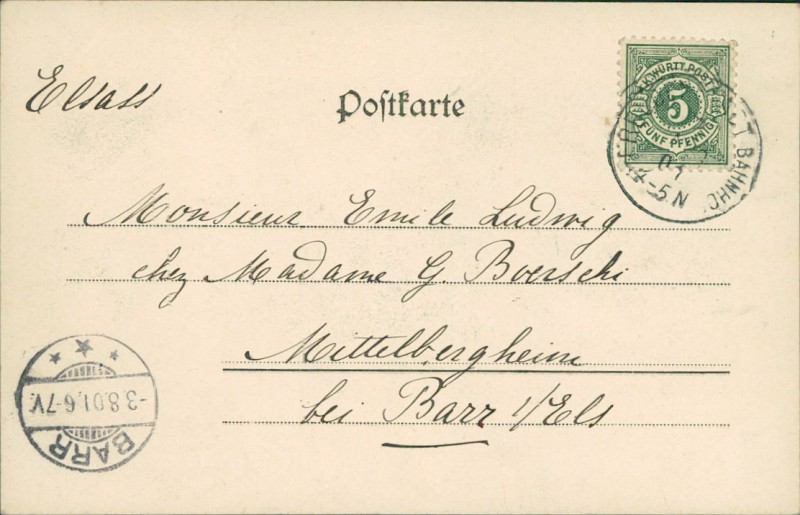 Elsass
Postkarte
K. WÜRTT. POST
5
FÜNF PFENNIG
BAHNHOF
4-5N
Monsieur Emile Ludwig
chez Madame G. Boerschi
Mittelbergheim
bei Barr i/Els
BARR
-3.8.01.6-7V.